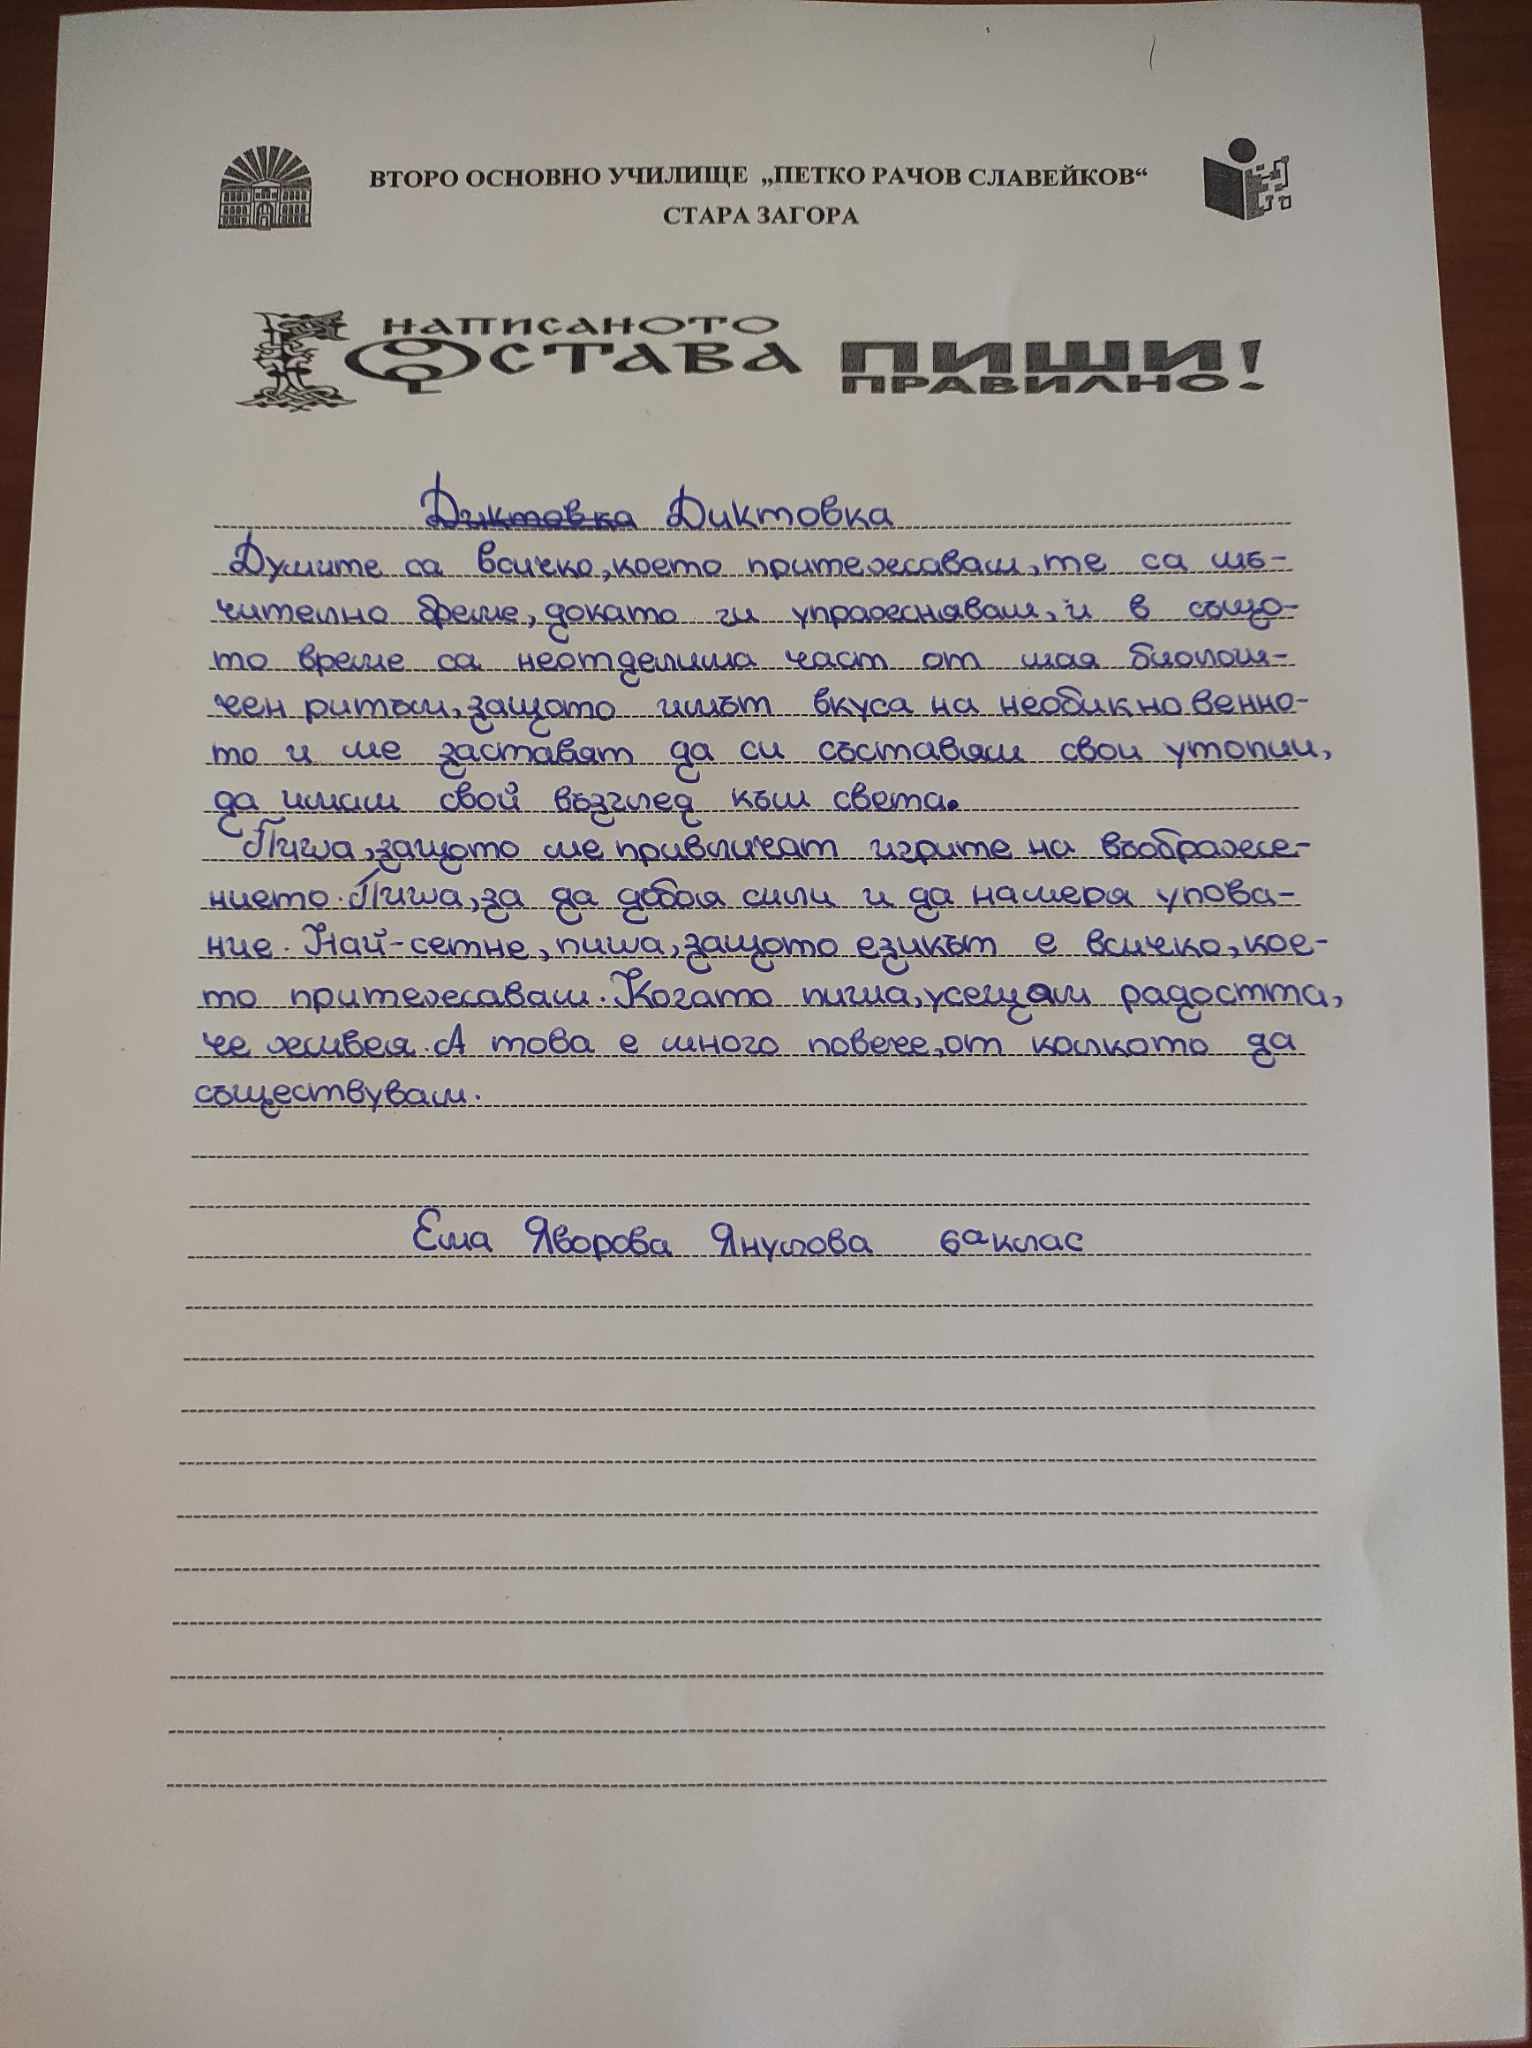 ВТОРО ОСНОВНО УЧИЛИЩЕ „ПЕТКО РАЧОВ СЛАВЕЙКОВ“
СТАРА ЗАГОРА
НАПИСАНОТО
ОСТАВА
ПИШИ
ПРАВИЛНО!
Диктовка Диктовка
Думите са всичко, което притежавам, те са мъ-
чително бреме, докато ги упражнявам, и в също-
то време са неотделима част от моя биологи-
чен ритъм, защото имат вкуса на необикновенно-
то и ме заставят да си съставям свои утопии,
да имам свой възглед към света.
Пиша, защото ме привличат игрите на въображе-
нието. Пиша, за да добоя сили и да намеря упова-
ние. Най-сетне, пиша, защото езикът е всичко, кое-
то притежавам. Когато пиша, усещам радостта,
че живея. А това е много повече, от колкото да
съществувам.
Ема Яворова Янулова 6ª клас